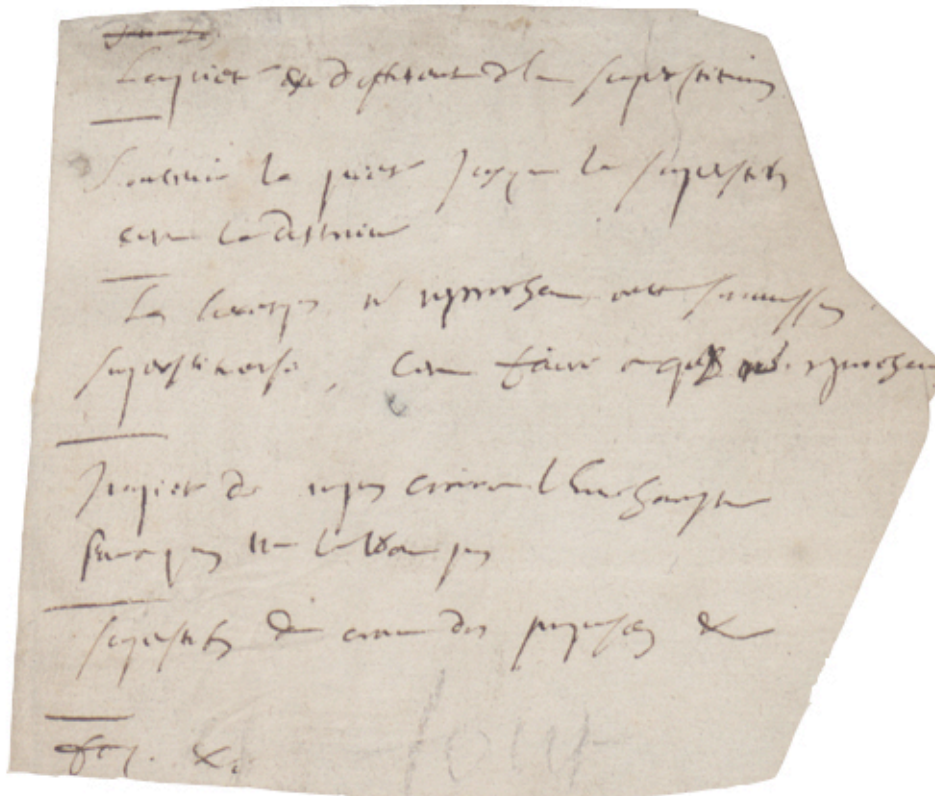 La piété est différente de la superstition
Soutenir la piété jusqu'à la superstition
c'est la détruire
Les hérétiques nous reprochent cette soumission
superstitieuse, c'est faire ce qu'ils nous reprochent
Impiété de ne pas croire l'Eucharistie
sur ce qu'on ne la voit pas
Superstition de croire des propositions &c
Foy. &c.